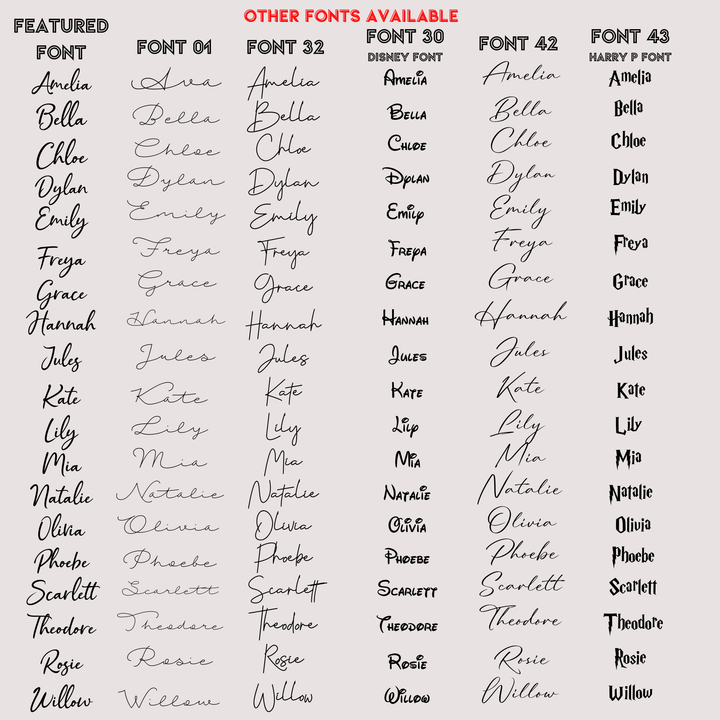 OTHER FONTS AVAILABLE
FEATURED FONT FONT 01 FONT 32 FONT 30 FONT 42 FONT 43
DISNEY FONT HARRY P FONT
Amelia Ava Amelia Amelia Amelia Amelia
Bella Bella Bella Bella Bella Bella
Chloe Chloe Chloe Chloe Chloe Chloe
Dylan Dylan Dylan Dylan Dylan Dylan
Emily Emily Emily Emily Emily Emily
Freya Freya Freya Freya Freya Freya
Grace Grace Grace Grace Grace Grace
Hannah Hannah Hannah Hannah Hannah Hannah
Jules Jules Jules Jules Jules Jules
Kate Kate Kate Kate Kate Kate
Lily Lily Lily Lily Lily Lily
Mia Mia Mia Mia Mia Mia
Natalie Natalie Natalie Natalie Natalie Natalie
Olivia Olivia Olivia Olivia Olivia Olivia
Phoebe Phoebe Phoebe Phoebe Phoebe Phoebe
Scarlett Scarlett Scarlett Scarlett Scarlett Scarlett
Theodore Theodore Theodore Theodore Theodore Theodore
Rosie Rosie Rosie Rosie Rosie Rosie
Willow Willow Willow Willow Willow Willow